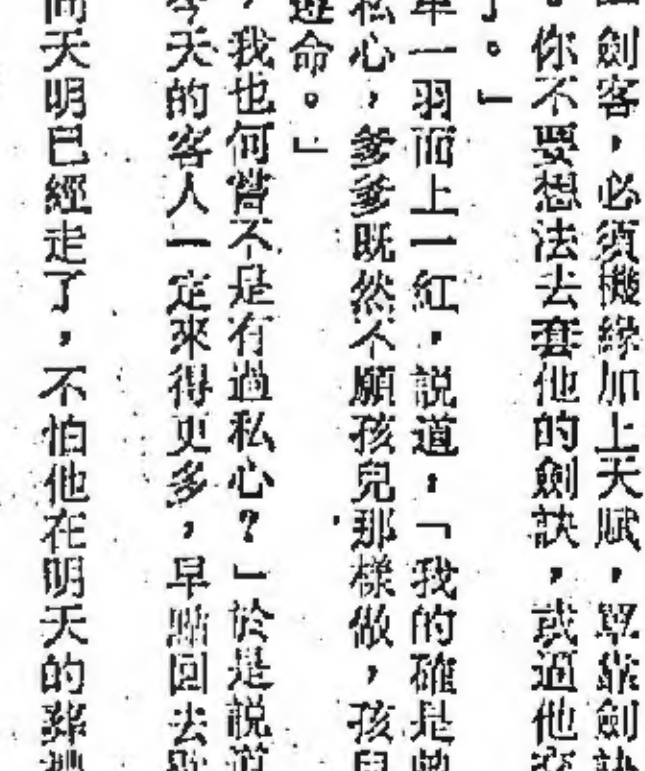 劍客，必須機緣加上天賦，單靠劍訣
。你不要想法去套他的劍訣，或逼他
了。」
單一羽面上一紅，說道，「我的確是
私心，爹爹既然不願孩兒那樣做，孩兒
遵命。」
，我也何嘗不是有過私心？」於是說道
今天的客人一定來得更多，早點回去
向天明已經走了，不怕他在明天的葬禮